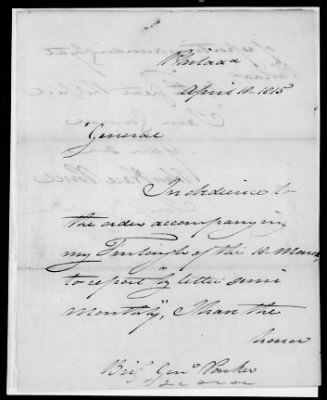 Philada
April 18 1815
General
In obedience to
the order accompanying
my Furlough of the 18. March
to report "by letter semi
monthly", I have the
honor
Brigr Genl Parker